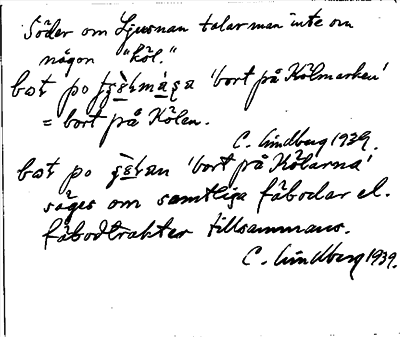 Söder om Ljusnan talar man inte om
någon "köl."
'bort på Kölmarken'
= bort på Kölen.
C. Lindberg 1939.
'bort på Kölarna'
säges om samtliga fäbodar el.
fäbodtrakter tillsammans.
C. Lindberg 1939.